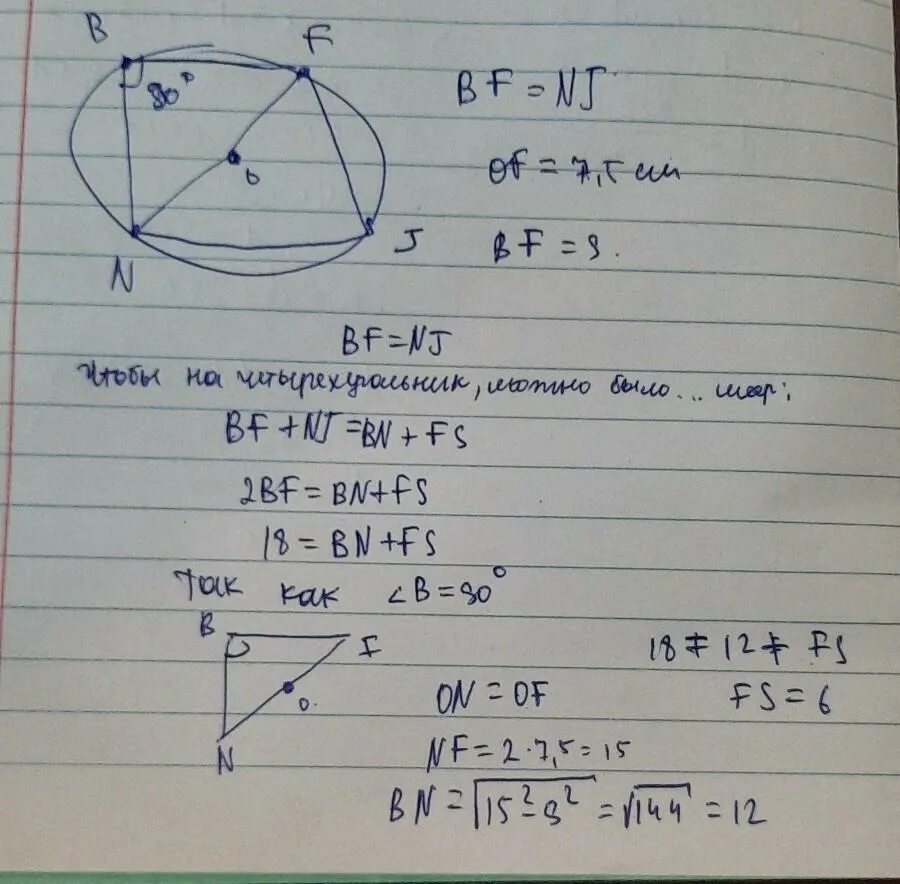 B F
90°
O
N J
BF = NJ
OF = 7,5 см
BF = 9.
BF = NJ
Чтобы на четырехугольник, можно было ... шар:
BF + NJ = BN + FS
2BF = BN + FS
18 = BN + FS
Так как ∠B = 90°
B F
O.
N
18 = 12 + FS
ON = OF
FS = 6
NF = 2 · 7,5 = 15
BN = √15² - 9² = √144 = 12